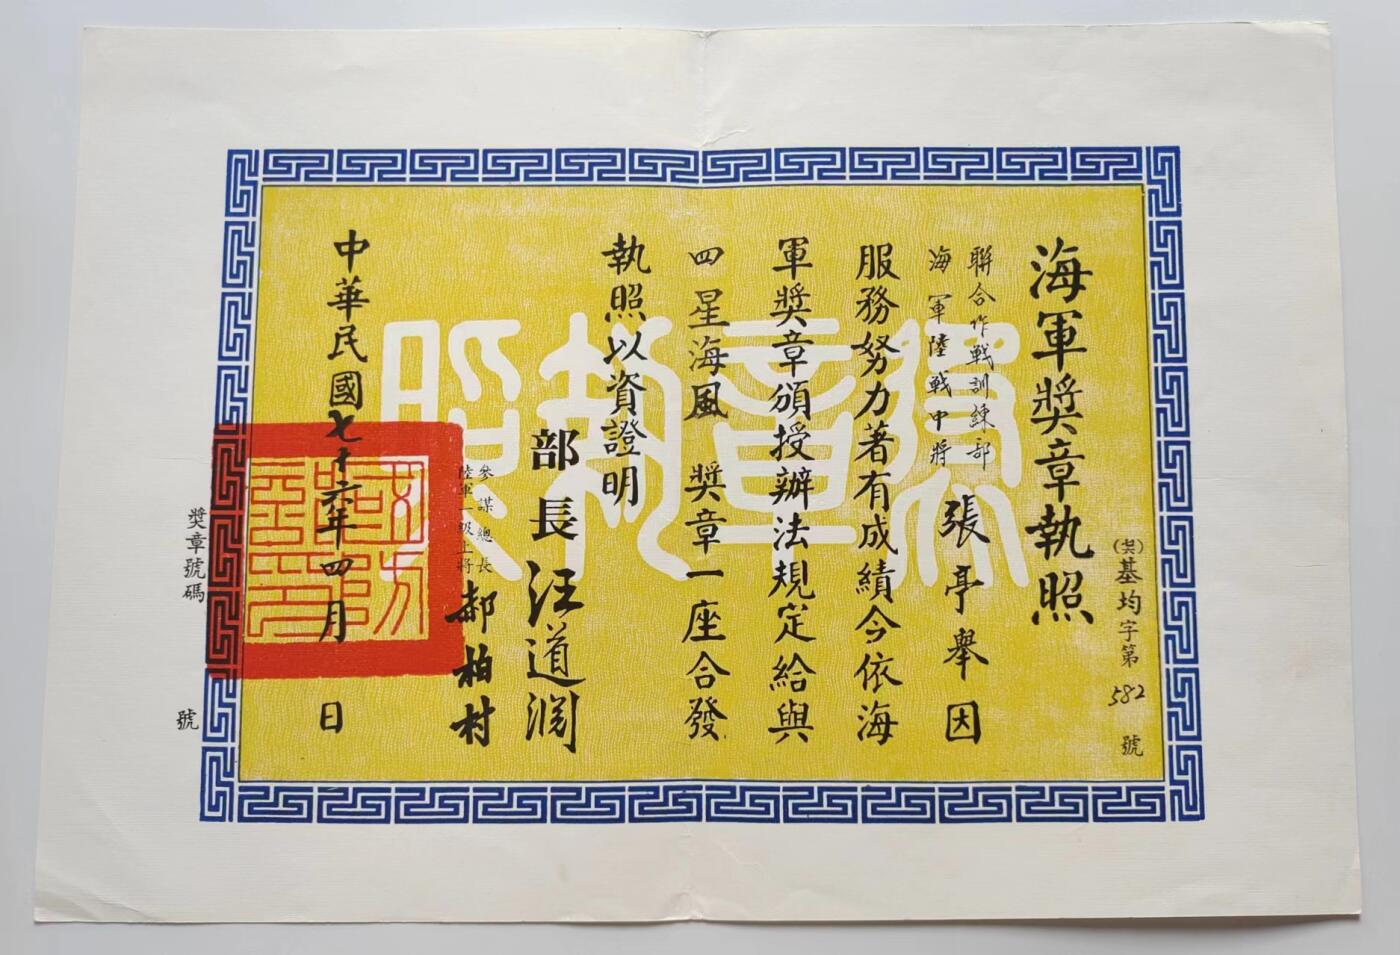 海軍獎章執照
基均字第582號
聯合作戰訓練部
海軍陸戰中將
張亭舉因
服務努力著有成績今依海
軍獎章頒授辦法規定給與
四星海風獎章一座合發
執照以資證明
部長汪道淵
參謀總長
陸軍一級上將
郝柏村
中華民國七十六年四月日
獎章號碼號
獎章執照